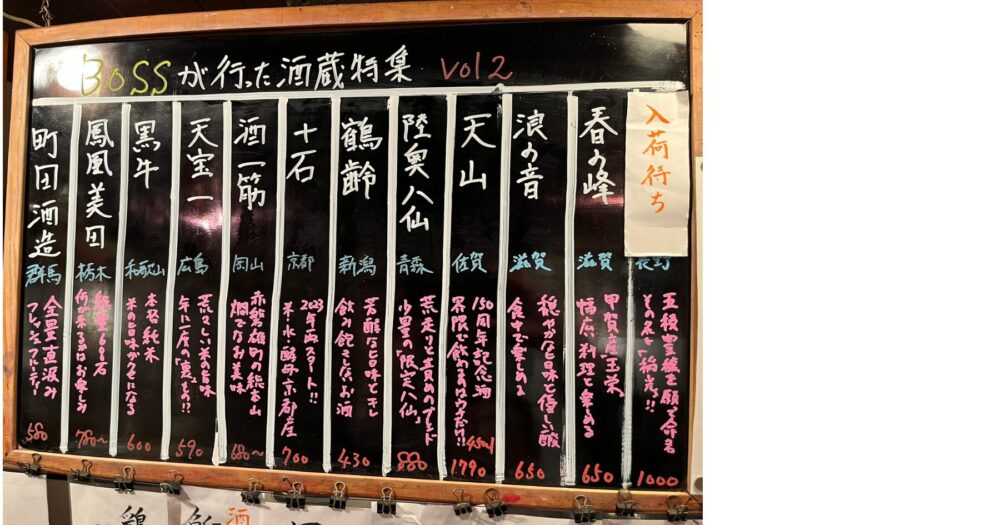 BOSSが行った酒蔵特集 vol2
入荷待ち
長野
五穀豊穣を願って命名
その名も「稲光」!!
1000
春の峰
滋賀
甲賀産玉栄
幅広い料理と楽しめる
650
浪の音
滋賀
穏やかな旨味と優しい酸
食中で楽しめる
650
天山
佐賀
150周年記念酒
界隈で飲めるのはウチだけ!!
45ml
1790
陸奥八仙
青森
荒走りと責めのブレンド
少量の「限定八仙」
880
鶴齢
新潟
芳醇な旨味とキレ
飲み飽きしないお酒
430
十石
京都
2023年再スタート!!
米・水・酵母京都産
700
酒一筋
岡山
赤磐雄町の総本山
燗でなお美味
680〜
天宝一
広島
荒々しい米の旨味
年に一度の「裏」もの!?
590
黒牛
和歌山
本格純米
米の旨味がクセになる
600
鳳凰美田
栃木
何が来るかはお楽しみ
780〜
町田酒造
群馬
全量直汲み
フレッシュフルーティー!
580